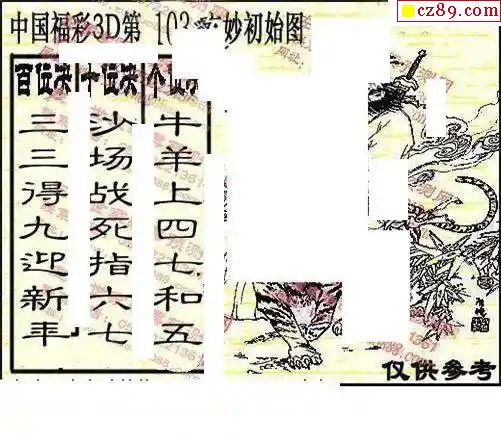 cz89.com
中国福彩3D第 103 妙初始图
百位决 十位决 个
三三得九迎新年
沙场战死指六七
牛羊上四七和五
仅供参考